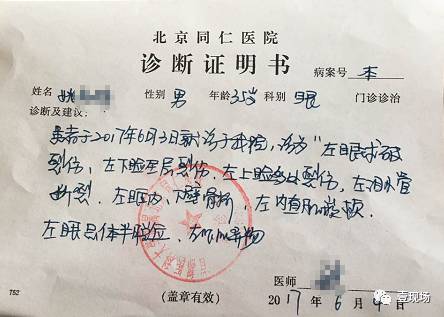 北京同仁医院
诊断证明书
病案号 本
姓名 姚 性别 男 年龄35岁 科别 眼 门诊诊治
诊断及建议：
患者于2017年6月3日就诊于我院，诊为“左眼球破
裂伤，左下睑全层裂伤，左上睑皮肤裂伤，左泪小管
断裂，左眶内、下壁骨折，左内直肌
左眼晶体半脱位，左 异物
医师
（盖章有效） 2017年6月 日
T52
壹现场